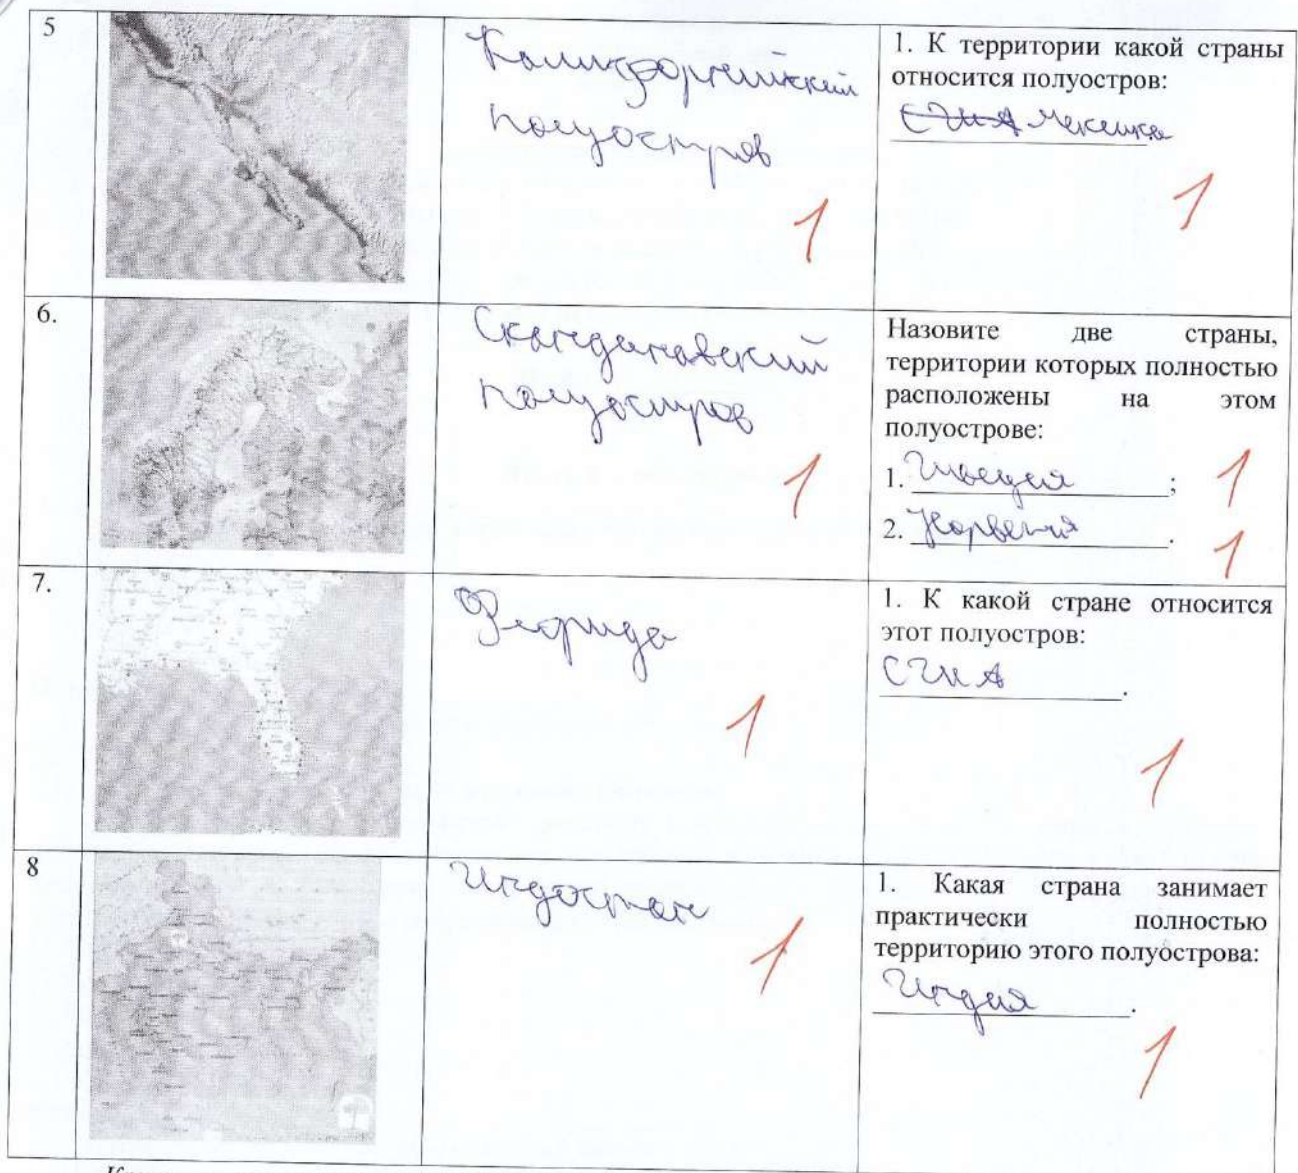 5
Калифорнийский
полуостров
1
1. К территории какой страны
относится полуостров:
США Мексика
1
6.
Скандинавский
полуостров
1
Назовите две страны,
территории которых полностью
расположены на этом
полуострове:
1. Швеция ; 1
2. Норвегия . 1
7.
Флорида
1
1. К какой стране относится
этот полуостров:
США .
1
8
Индостан
1
1. Какая страна занимает
практически полностью
территорию этого полуострова:
Индия .
1